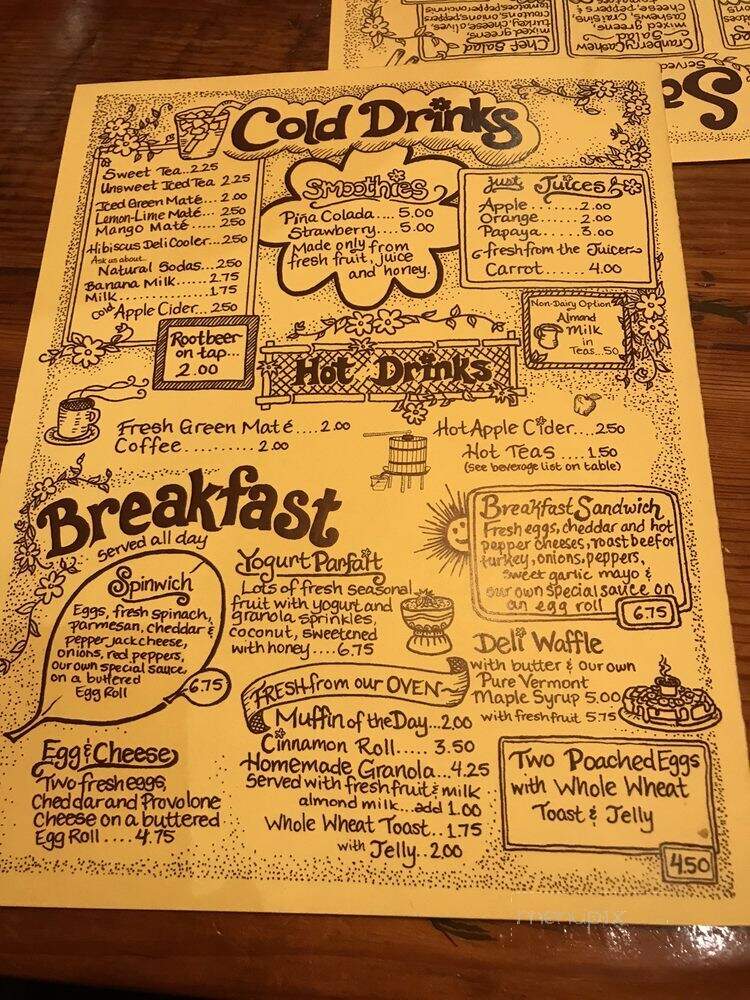 Chef Salad
mixed greens,
turkey, cheese, olives,
croutons, onions, peppers
Cranberry Cashew
Salad
mixed greens
cashews, Craisins,
cheese, pepper &
Served
Cold Drinks
Sweet Tea...2.25
Unsweet Iced Tea 2.25
Iced Green Maté.... 2.00
Lemon-Lime Maté.... 2.50
Mango Maté ..... 2.50
Hibiscus Deli Cooler...2.50
Ask us about...
Natural Sodas...2.50
Banana Milk........ 2.75
Milk................ 1.75
Cold Apple Cider... 2.50
Rootbeer
on tap...
2.00
Smoothies
Piña Colada.... 5.00
Strawberry.... 5.00
Made only from
fresh fruit, juice
and honey.
Just Juices
Apple..........2.00
Orange........ 2.00
Papaya....... 3.00
fresh from the Juicer
Carrot........ 4.00
Non-Dairy Option
Almond
Milk
in
Teas...50
Hot Drinks
Fresh Green Maté .... 2.00
Coffee.......... 2.00
Hot Apple Cider....2.50
Hot Teas .... 1.50
(see beverage list on table)
Breakfast
served all day
Spinwich
Eggs, fresh spinach,
parmesan, cheddar &
pepper jack cheese,
onions, red peppers,
our own special sauce,
on a buttered
Egg Roll
6.75
Egg & Cheese
Two fresh eggs,
Cheddar and Provolone
Cheese on a buttered
Egg Roll .... 4.75
Yogurt Parfait
Lots of fresh seasonal
fruit with yogurt and
granola sprinkles,
coconut, sweetened
with honey....6.75
FRESH from our OVEN~
Muffin of the Day...2.00
Cinnamon Roll..... 3.50
Homemade Granola...4.25
Served with fresh fruit & milk
almond milk...add 1.00
Whole Wheat Toast.. 1.75
with Jelly.. 2.00
Breakfast Sandwich
Fresh eggs, cheddar and hot
pepper cheeses, roast beef or
turkey, onions, peppers,
sweet garlic mayo &
our own special sauce on
an egg roll
6.75
Deli Waffle
with butter & our own
Pure Vermont
Maple Syrup 5.00
with fresh fruit 5.75
Two Poached Eggs
with Whole Wheat
Toast & Jelly
4.50
menupix